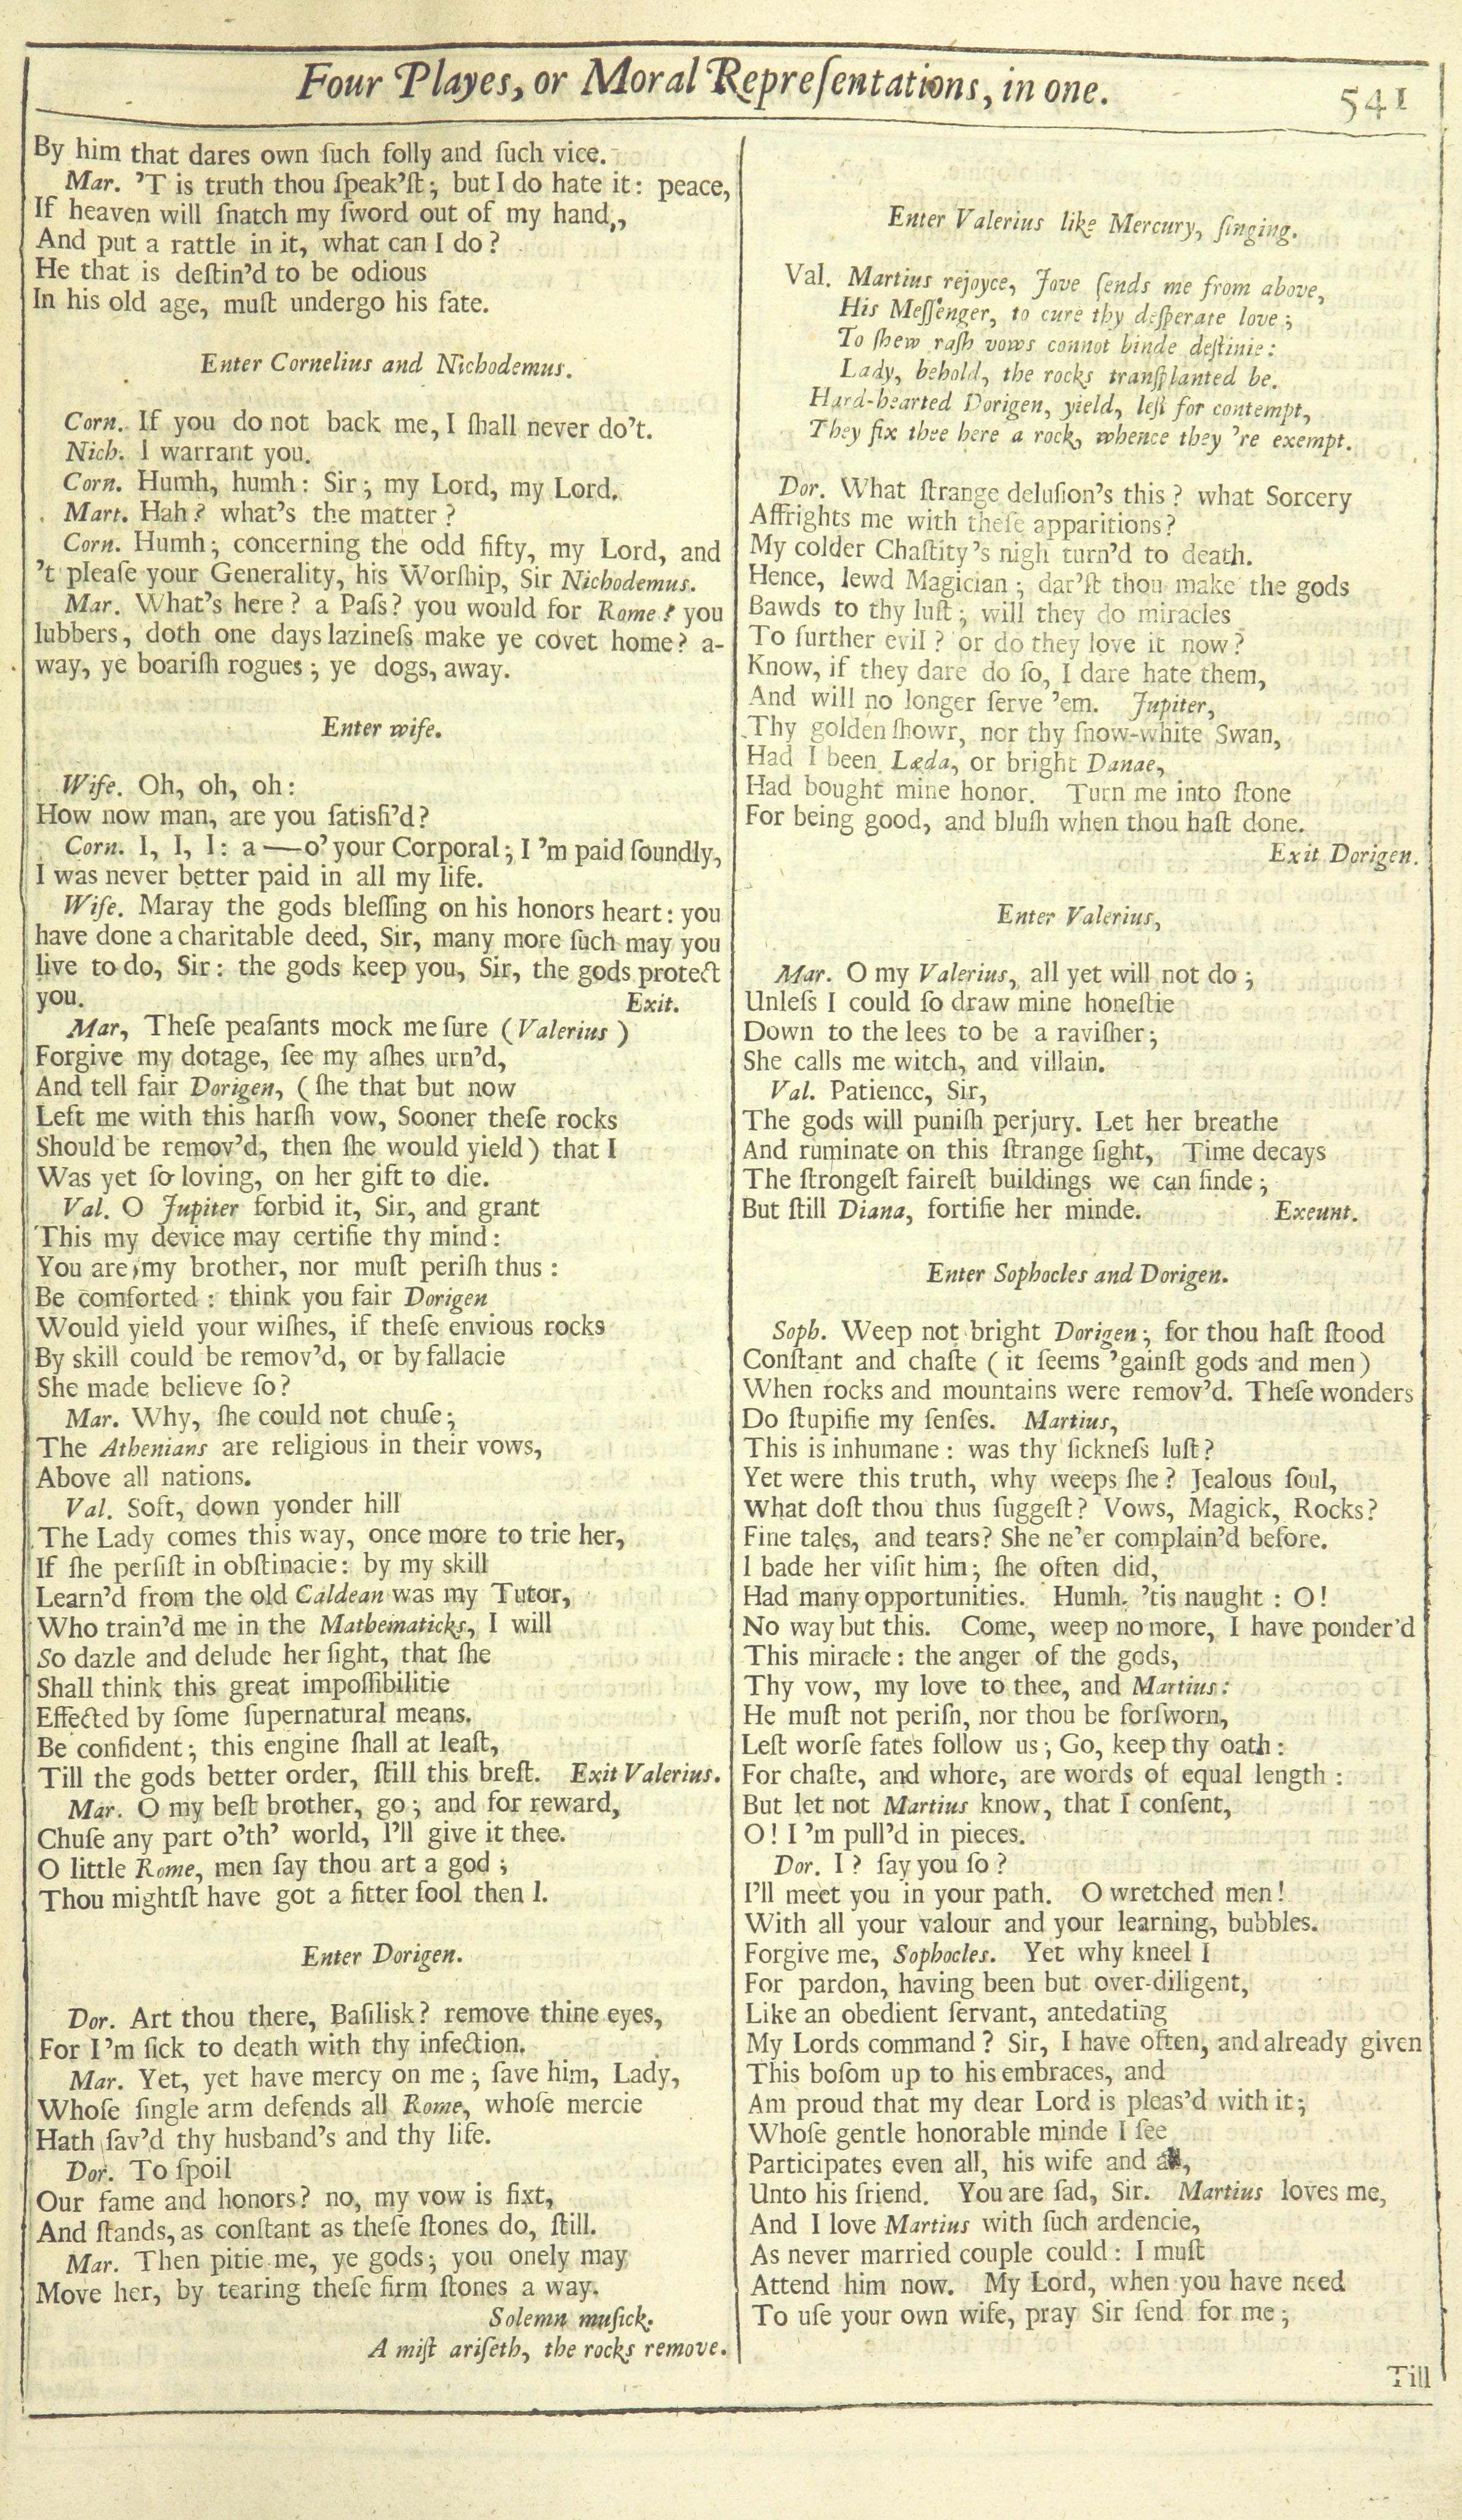 Four Playes, or Moral Repreſentations, in one.
541
By him that dares own ſuch folly and ſuch vice.
Mar. 'T is truth thou ſpeak'ſt; but I do hate it: peace,
If heaven will ſnatch my ſword out of my hand,,
And put a rattle in it, what can I do?
He that is deſtin'd to be odious
In his old age, muſt undergo his fate.
Enter Cornelius and Nichodemus.
Corn. If you do not back me, I ſhall never do't.
Nich. I warrant you.
Corn. Humh, humh: Sir; my Lord, my Lord.
Mart. Hah? what's the matter?
Corn. Humh; concerning the odd fifty, my Lord, and
't pleaſe your Generality, his Worſhip, Sir Nichodemus.
Mar. What's here? a Paſs? you would for Rome? you
lubbers, doth one days lazineſs make ye covet home? a-
way, ye boariſh rogues; ye dogs, away.
Enter wife.
Wife. Oh, oh, oh:
How now man, are you ſatisfi'd?
Corn. I, I, I: a —— o' your Corporal; I 'm paid ſoundly,
I was never better paid in all my life.
Wife. Maray the gods bleſſing on his honors heart: you
have done a charitable deed, Sir, many more ſuch may you
live to do, Sir: the gods keep you, Sir, the gods protect
you. Exit.
Mar, Theſe peaſants mock me ſure (Valerius)
Forgive my dotage, ſee my aſhes urn'd,
And tell fair Dorigen, (ſhe that but now
Left me with this harſh vow, Sooner theſe rocks
Should be remov'd, then ſhe would yield) that I
Was yet ſo loving, on her gift to die.
Val. O Jupiter forbid it, Sir, and grant
This my device may certifie thy mind:
You are my brother, nor muſt periſh thus:
Be comforted: think you fair Dorigen
Would yield your wiſhes, if theſe envious rocks
By skill could be remov'd, or by fallacie
She made believe ſo?
Mar. Why, ſhe could not chuſe;
The Athenians are religious in their vows,
Above all nations.
Val. Soft, down yonder hill
The Lady comes this way, once more to trie her,
If ſhe perſiſt in obſtinacie: by my skill
Learn'd from the old Caldean was my Tutor,
Who train'd me in the Mathematicks, I will
So dazle and delude her ſight, that ſhe
Shall think this great impoſſibilitie
Effected by ſome ſupernatural means.
Be confident; this engine ſhall at leaſt,
Till the gods better order, ſtill this breſt. Exit Valerius.
Mar. O my beſt brother, go; and for reward,
Chuſe any part o'th' world, I'll give it thee.
O little Rome, men ſay thou art a god;
Thou mightſt have got a fitter fool then I.
Enter Dorigen.
Dor. Art thou there, Baſilisk? remove thine eyes,
For I'm ſick to death with thy infection.
Mar. Yet, yet have mercy on me; ſave him, Lady,
Whoſe ſingle arm defends all Rome, whoſe mercie
Hath ſav'd thy husband's and thy life.
Dor. To ſpoil
Our fame and honors? no, my vow is fixt,
And ſtands, as conſtant as theſe ſtones do, ſtill.
Mar. Then pitie me, ye gods; you onely may
Move her, by tearing theſe firm ſtones a way.
Solemn muſick.
A miſt ariſeth, the rocks remove.
Enter Valerius like Mercury, ſinging.
Val. Martius rejoyce, Jove ſends me from above,
His Meſſenger, to cure thy deſperate love;
To ſhew raſh vows connot binde deſtinie:
Lady, behold, the rocks tranſplanted be.
Hard-hearted Dorigen, yield, leſt for contempt,
They fix thee here a rock, whence they 're exempt.
Dor. What ſtrange deluſion's this? what Sorcery
Affrights me with theſe apparitions?
My colder Chaſtity's nigh turn'd to death.
Hence, lewd Magician; dar'ſt thou make the gods
Bawds to thy luſt; will they do miracles
To further evil? or do they love it now?
Know, if they dare do ſo, I dare hate them,
And will no longer ſerve 'em. Jupiter,
Thy golden ſhowr, nor thy ſnow-white Swan,
Had I been Læda, or bright Danae,
Had bought mine honor. Turn me into ſtone
For being good, and bluſh when thou haſt done.
Exit Dorigen.
Enter Valerius,
Mar. O my Valerius, all yet will not do;
Unleſs I could ſo draw mine honeſtie
Down to the lees to be a raviſher;
She calls me witch, and villain.
Val. Patience, Sir,
The gods will puniſh perjury. Let her breathe
And ruminate on this ſtrange ſight, Time decays
The ſtrongeſt faireſt buildings we can finde;
But ſtill Diana, fortifie her minde. Exeunt.
Enter Sophocles and Dorigen.
Soph. Weep not bright Dorigen; for thou haſt ſtood
Conſtant and chaſte (it ſeems 'gainſt gods and men)
When rocks and mountains were remov'd. Theſe wonders
Do ſtupifie my ſenſes. Martius,
This is inhumane: was thy ſickneſs luſt?
Yet were this truth, why weeps ſhe? Jealous ſoul,
What doſt thou thus ſuggeſt? Vows, Magick, Rocks?
Fine tales, and tears? She ne'er complain'd before.
I bade her viſit him; ſhe often did,
Had many opportunities. Humh. 'tis naught: O!
No way but this. Come, weep no more, I have ponder'd
This miracle: the anger of the gods,
Thy vow, my love to thee, and Martius:
He muſt not periſh, nor thou be forſworn,
Leſt worſe fates follow us; Go, keep thy oath:
For chaſte, and whore, are words of equal length:
But let not Martius know, that I conſent,
O! I 'm pull'd in pieces.
Dor. I? ſay you ſo?
I'll meet you in your path. O wretched men!
With all your valour and your learning, bubbles.
Forgive me, Sophocles. Yet why kneel I
For pardon, having been but over-diligent,
Like an obedient ſervant, antedating
My Lords command? Sir, I have often, and already given
This boſom up to his embraces, and
Am proud that my dear Lord is pleas'd with it;
Whoſe gentle honorable minde I ſee
Participates even all, his wife and
Unto his friend. You are ſad, Sir. Martius loves me,
And I love Martius with ſuch ardencie,
As never married couple could: I muſt
Attend him now. My Lord, when you have need
To uſe your own wife, pray Sir ſend for me;
Till